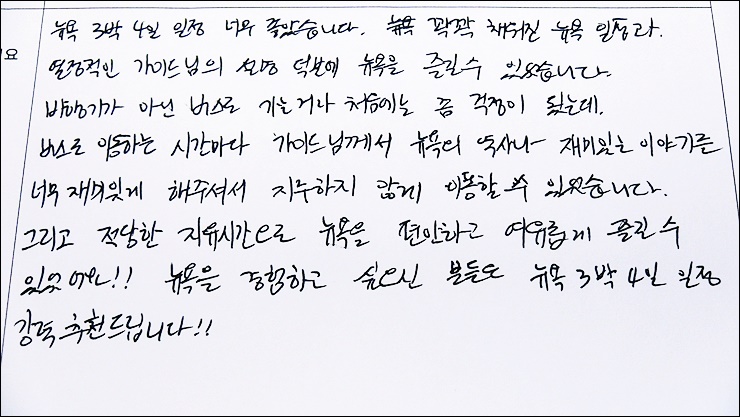 뉴욕 3박 4일 일정 너무 좋았습니다. 뉴욕 꽉꽉 채워진 뉴욕 일정과.
요
열정적인 가이드님의 설명 덕분에 뉴욕을 즐길 수 있었습니다.
비행기가 아닌 버스로 가는거나 처음에는 좀 걱정이 됬는데.
버스로 이동하는 시간마다 가이드님께서 뉴욕의 역사나 재미있는 이야기를
너무 재미있게 해주셔서 지루하지 않게 이동할 수 있었습니다.
그리고 적당한 자유시간으로 뉴욕을 편안하고 여유롭게 즐길 수
있었어요!! 뉴욕을 경험하고 싶으신 분들도 뉴욕 3박 4일 일정
강력 추천드립니다!!